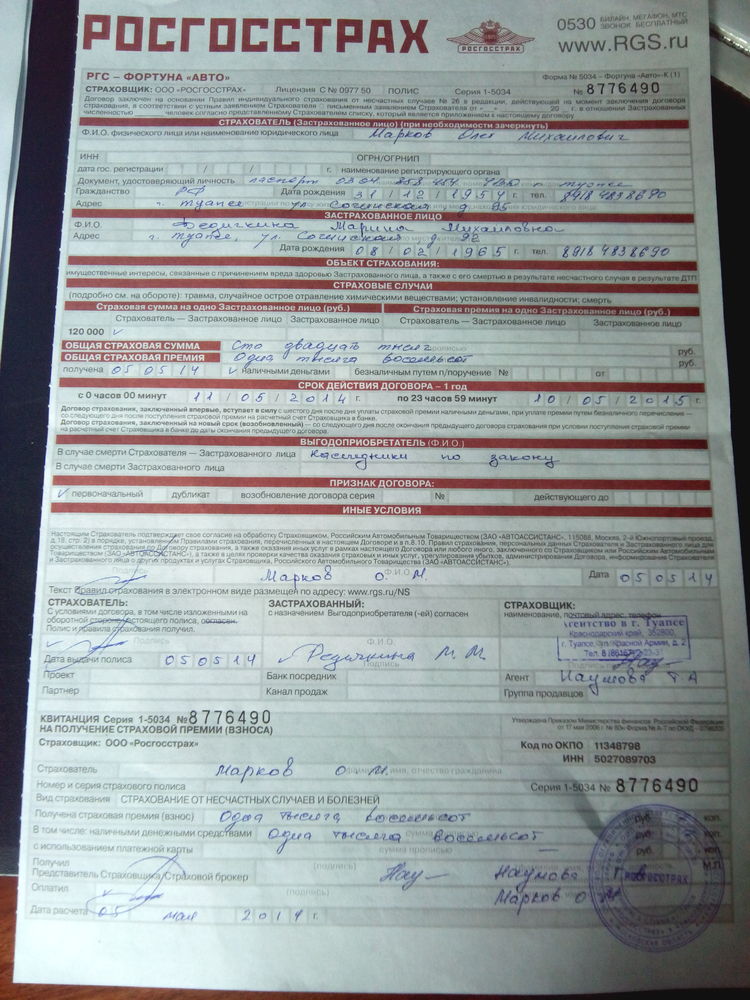 РОСГОССТРАХ
РОСГОССТРАХ
0530 БИЛАЙН, МЕГАФОН, МТС ЗВОНОК БЕСПЛАТНЫЙ
www.RGS.ru
РГС – ФОРТУНА «АВТО»
Форма № 5034 – Фортуна «Авто»-К (1)
СТРАХОВЩИК: ООО «РОСГОССТРАХ» Лицензия С № 0977 50 ПОЛИС Серия 1-5034 № 8776490
Договор заключен на основании Правил индивидуального страхования от несчастных случаев № 26 в редакции, действующей на момент заключения договора
страхования, в соответствии с устным заявлением Страхователя письменным заявлением Страхователя от «   »   20   г. в отношении Застрахованных
численностью   человек согласно представленному Страхователем списку, который является приложением к настоящему договору.
СТРАХОВАТЕЛЬ (Застрахованное лицо) (при необходимости зачеркнуть)
Ф.И.О. физического лица или наименование юридического лица Марков Олег Михайлович
ИНН ОГРН/ОГРНИП
дата гос. регистрации / / г. наименование регистрирующего органа
Документ, удостоверяющий личность паспорт
Гражданство РФ Дата рождения 31/12/1954 г. тел. 89184838690
Адрес г. Туапсе ул. Сочинская д. 95
ЗАСТРАХОВАННОЕ ЛИЦО
Ф.И.О. Марина Михайловна
Адрес г. Туапсе, ул. Сочинская д.
Дата рождения 08/02/1965 г. тел. 89184838690
ОБЪЕКТ СТРАХОВАНИЯ:
имущественные интересы, связанные с причинением вреда здоровью Застрахованного лица, а также с его смертью в результате несчастного случая в результате ДТП
СТРАХОВЫЕ СЛУЧАИ
(подробно см. на обороте): травма, случайное острое отравление химическими веществами; установление инвалидности; смерть
Страховая сумма на одно Застрахованное лицо (руб.) Страховая премия на одно Застрахованное лицо (руб.)
Страхователь — Застрахованное лицо Застрахованное лицо Страхователь — Застрахованное лицо Застрахованное лицо
120 000 ✓
ОБЩАЯ СТРАХОВАЯ СУММА Сто двадцать тысяч руб.
ОБЩАЯ СТРАХОВАЯ ПРЕМИЯ Одна тысяча восемьсот руб.
получена 05 05 14 ✓ наличными деньгами безналичным путем п/поручение № от
СРОК ДЕЙСТВИЯ ДОГОВОРА – 1 год
с 0 часов 00 минут 11/05/2014 г. по 23 часов 59 минут 10/05/2015 г.
Договор страхования, заключенный впервые, вступает в силу с шестого дня после дня уплаты страховой премии наличными деньгами, при уплате премии путем безналичного перечисления —
со следующего дня после поступления страховой премии на расчетный счет Страховщика в банке.
Договор страхования, заключенный на новый срок (возобновленный) — со следующего дня после окончания предыдущего договора страхования при условии поступления страховой премии
на расчетный счет Страховщика в банке до даты окончания предыдущего договора страхования.
ВЫГОДОПРИОБРЕТАТЕЛЬ (Ф.И.О.)
В случае смерти Страхователя — Застрахованного лица наследники по закону
В случае смерти Застрахованного лица
ПРИЗНАК ДОГОВОРА:
✓ первоначальный дубликат возобновление договора серия № действующего до
ИНЫЕ УСЛОВИЯ
Настоящим Страхователь подтверждает свое согласие на обработку Страховщиком, Российским Автомобильным Товариществом (ЗАО «АВТОАССИСТАНС», 115088, Москва, 2-й Южнопортовый проезд,
Марков О. М. Ф.И.О. Дата 05 05 14
Текст Правил страхования в электронном виде размещен по адресу: www.rgs.ru/NS
СТРАХОВАТЕЛЬ: ЗАСТРАХОВАННЫЙ: СТРАХОВЩИК:
С условиями договора, в том числе изложенными на
оборотной стороне настоящего полиса, согласен.
Полис и правила страхования получил.
с назначением Выгодоприобретателя (-ей) согласен
наименование, почтовый адрес, телефон
Агентство в г. Туапсе
Краснодарский край, 352800,
г. Туапсе, ул. Красной Армии, д. 2
Подпись
Ф.И.О.
Дата выдачи полиса 05 05 14 М. М. Подпись
Проект Банк посредник Агент Наумова Т. А
Партнер Канал продаж Группа продавцов
КВИТАНЦИЯ Серия 1-5034 № 8776490
НА ПОЛУЧЕНИЕ СТРАХОВОЙ ПРЕМИИ (ВЗНОСА)
Утверждена Приказом Министерства финансов Российской Федерации
Страховщик: ООО «Росгосстрах»
Код по ОКПО 11348798
ИНН 5027089703
Страхователь Марков О М.
Номер и серия страхового полиса Серия 1-5034 № 8776490
Вид страхования СТРАХОВАНИЕ ОТ НЕСЧАСТНЫХ СЛУЧАЕВ И БОЛЕЗНЕЙ
Получена страховая премия (взнос) Одна тысяча восемьсот руб. коп.
В том числе: наличными денежными средствами Одна тысяча восемьсот руб. коп.
с использованием платежной карты сумма прописью руб. коп.
Получил М.П.
Представитель Страховщика/Страховой брокер (подпись) Наумова
Оплатил (подпись) Марков О
Дата расчета 05 мая 2014 г.
РОСГОССТРАХ